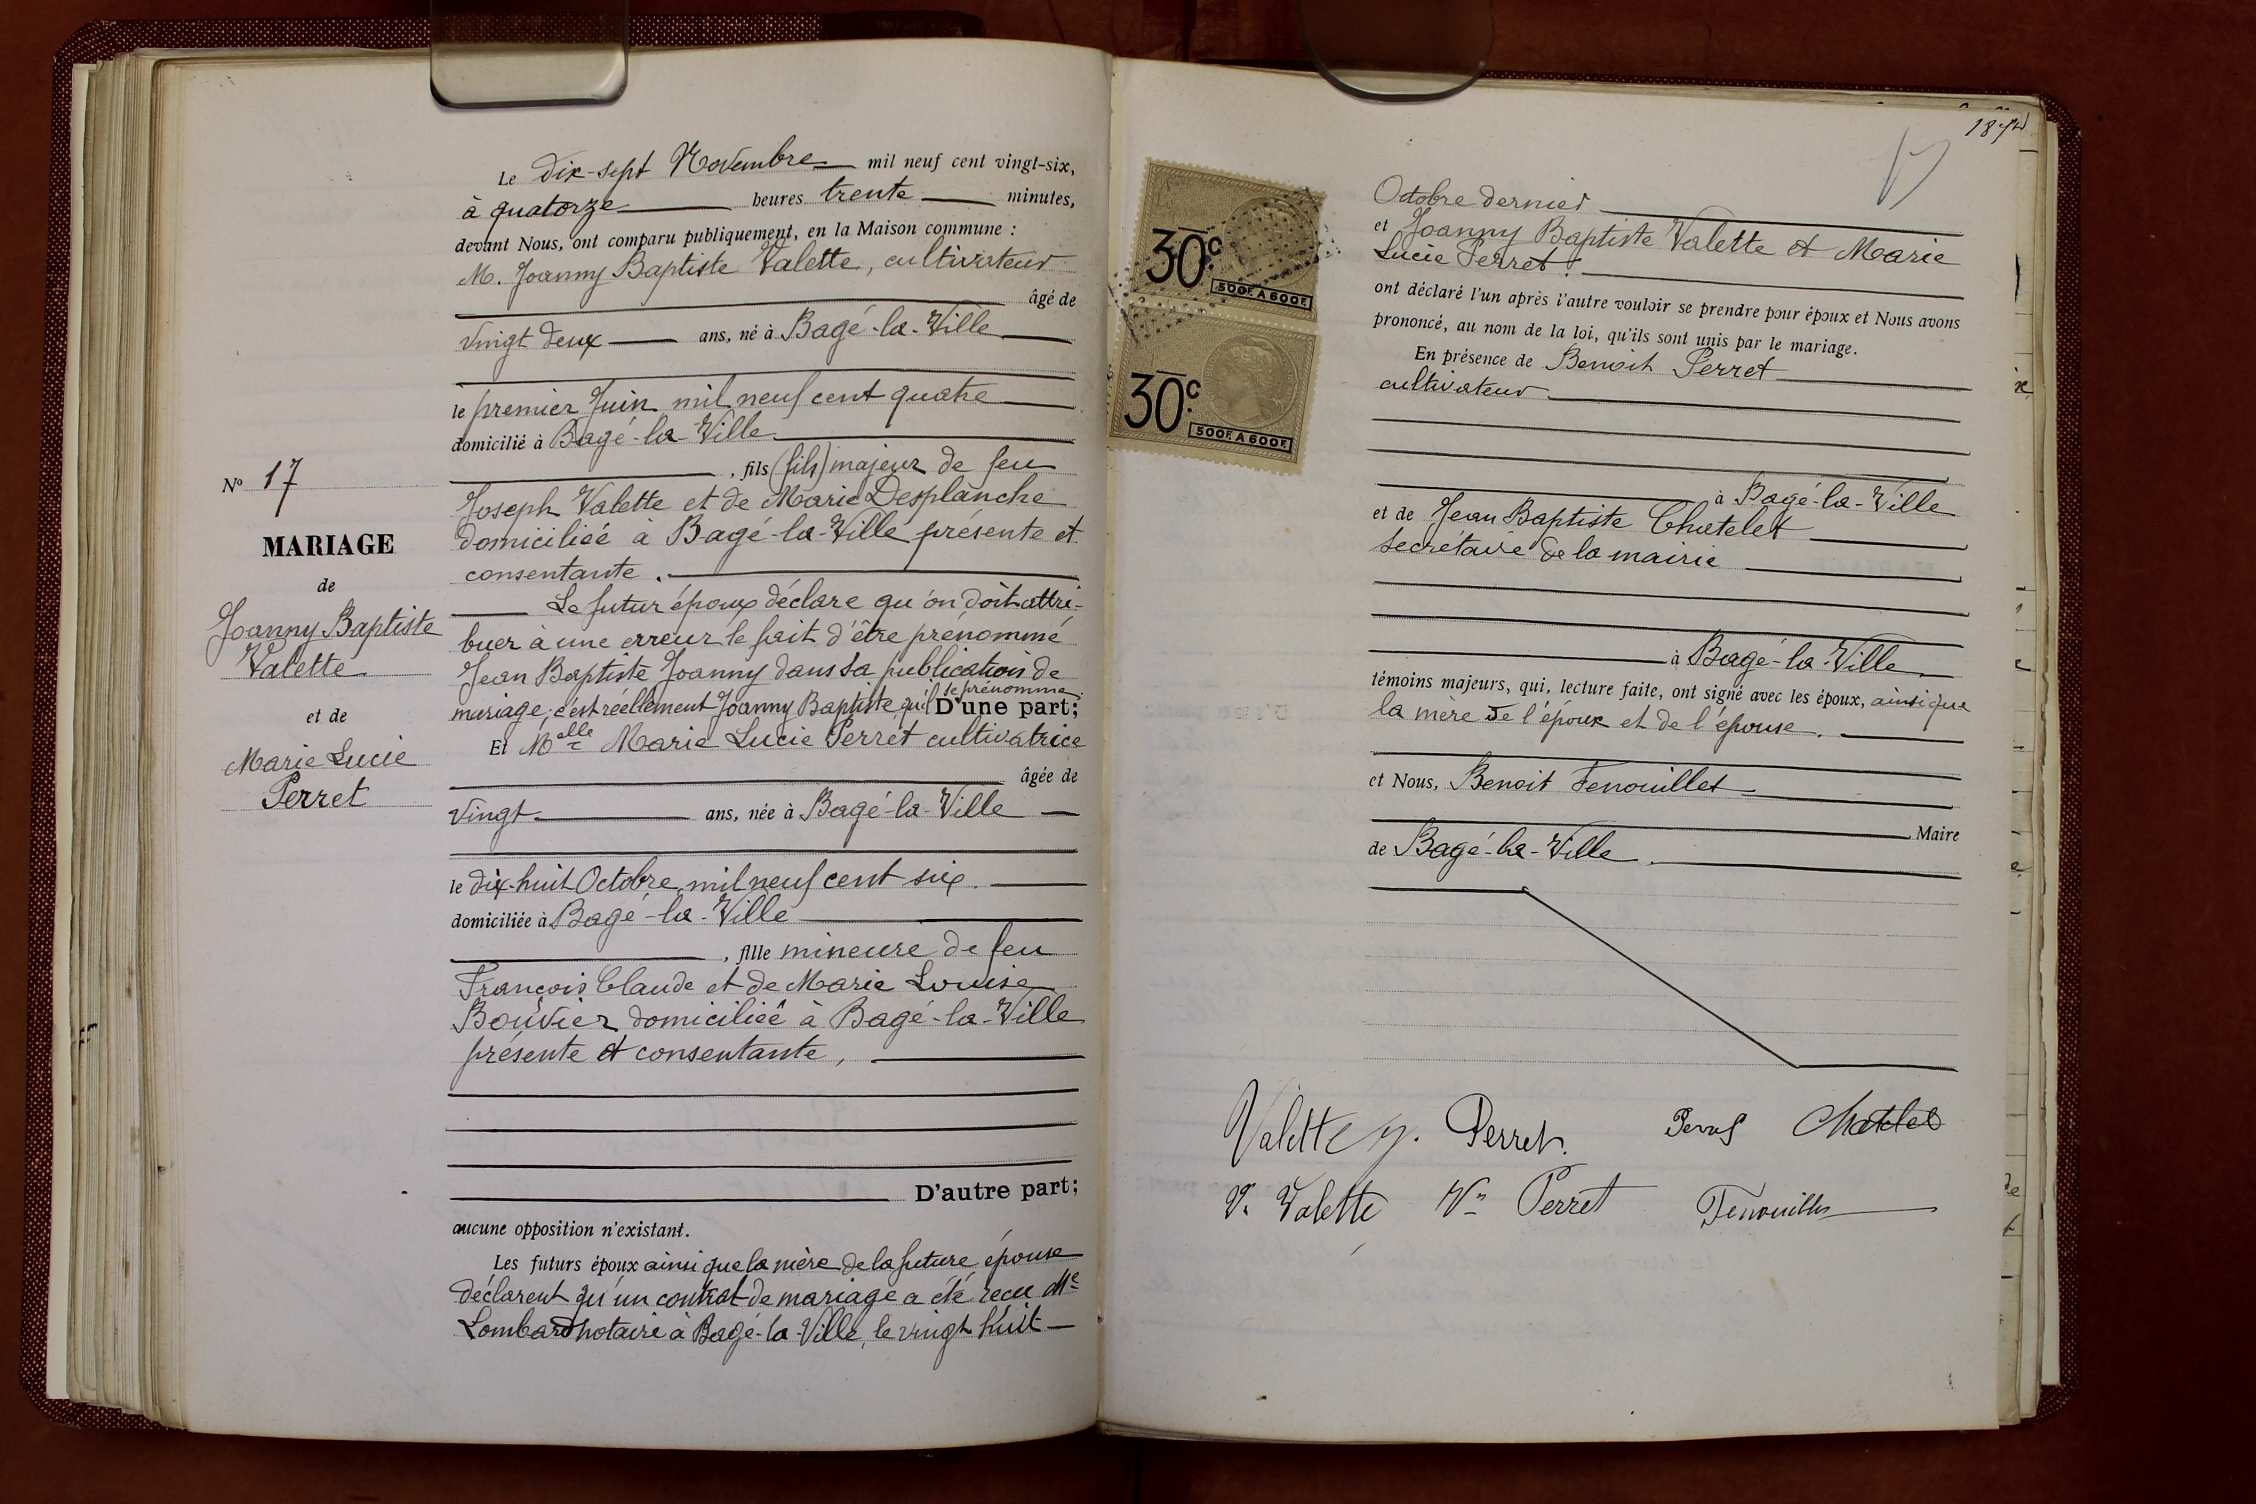 Le dix-sept Novembre mil neuf cent vingt-six,
à quatorze heures trente minutes,
devant Nous, ont comparu publiquement, en la Maison commune :
M. Joanny Baptiste Valette, cultivateur
âgé de
vingt deux ans, né à Bagé-la-Ville
le premier Juin mil neuf cent quatre
domicilié à Bagé-la-Ville
, fils (fils) majeur de feu
Joseph Valette et de Marie Desplanche
domiciliée à Bagé-la-Ville présente et
consentante.
Le futur époux déclare qu'on doit attri-
buer à une erreur le fait d'être prénommé
Jean Baptiste Joanny dans sa publication de
mariage, c'est réellement Joanny Baptiste qu'il se prénomme. D'une part;
Et Melle Marie Lucie Perret cultivatrice
âgée de
vingt ans, née à Bagé-la-Ville
le dix-huit Octobre mil neuf cent six.
domiciliée à Bagé-la-Ville
, fille mineure de feu
François Claude et de Marie Louise
Bouvier domiciliée à Bagé-la-Ville
présente et consentante,
D'autre part;
aucune opposition n'existant.
Les futurs époux ainsi que la mère de la future épouse
déclarent qu'un contrat de mariage a été recu Me
Lombard notaire à Bagé-la-Ville, le vingt huit
No 17
MARIAGE
de
Joanny Baptiste
Valette
et de
Marie Lucie
Perret
17
30c
500F A 600F
30c
500F A 600F
Octobre dernier
et Joanny Baptiste Valette et Marie
Lucie Perret.
ont déclaré l'un après l'autre vouloir se prendre pour époux et Nous avons
prononcé, au nom de la loi, qu'ils sont unis par le mariage.
En présence de Benoit Perret
cultivateur
à Bagé-la-Ville
et de Jean Baptiste Chatelet
secrétaire de la mairie
à Bagé-la-Ville
témoins majeurs, qui, lecture faite, ont signé avec les époux, ainsi que
la mère de l'époux et de l'épouse.
et Nous, Benoit Fenouillet
Maire
de Bagé-la-Ville.
Valette J. Perret. Perret Chatelet
V. Valette Vve Perret Fenouillet